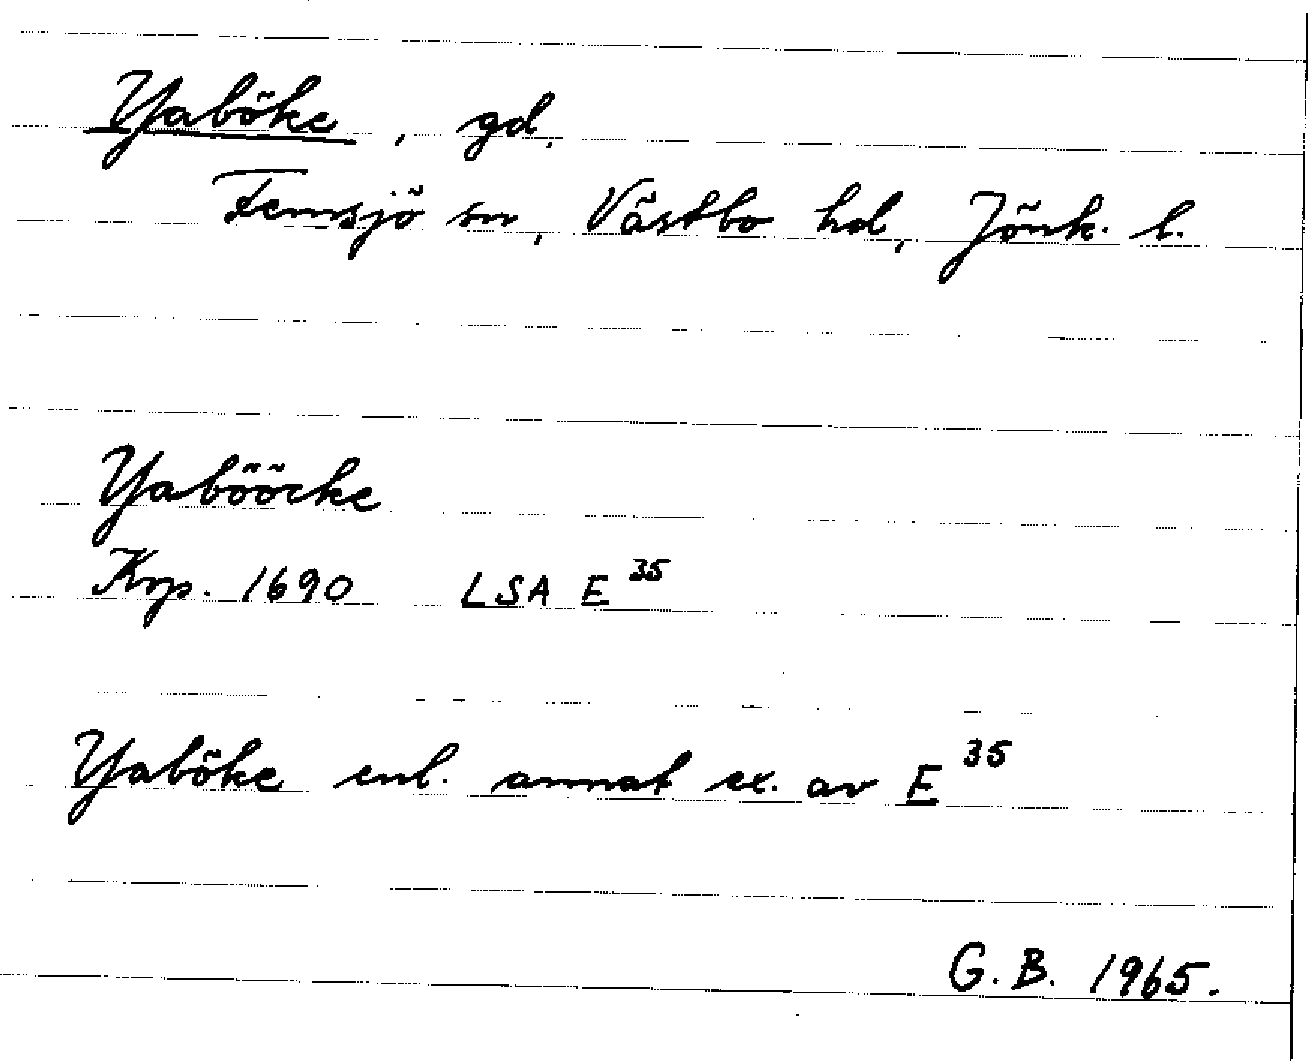 Yaböke, gd.
Femsjö sn, Västbo hd, Jönk. l.
Yabööcke
Krp. 1690 LSA E 35
Yaböke enl. annat ex. av E 35
G. B. 1965.